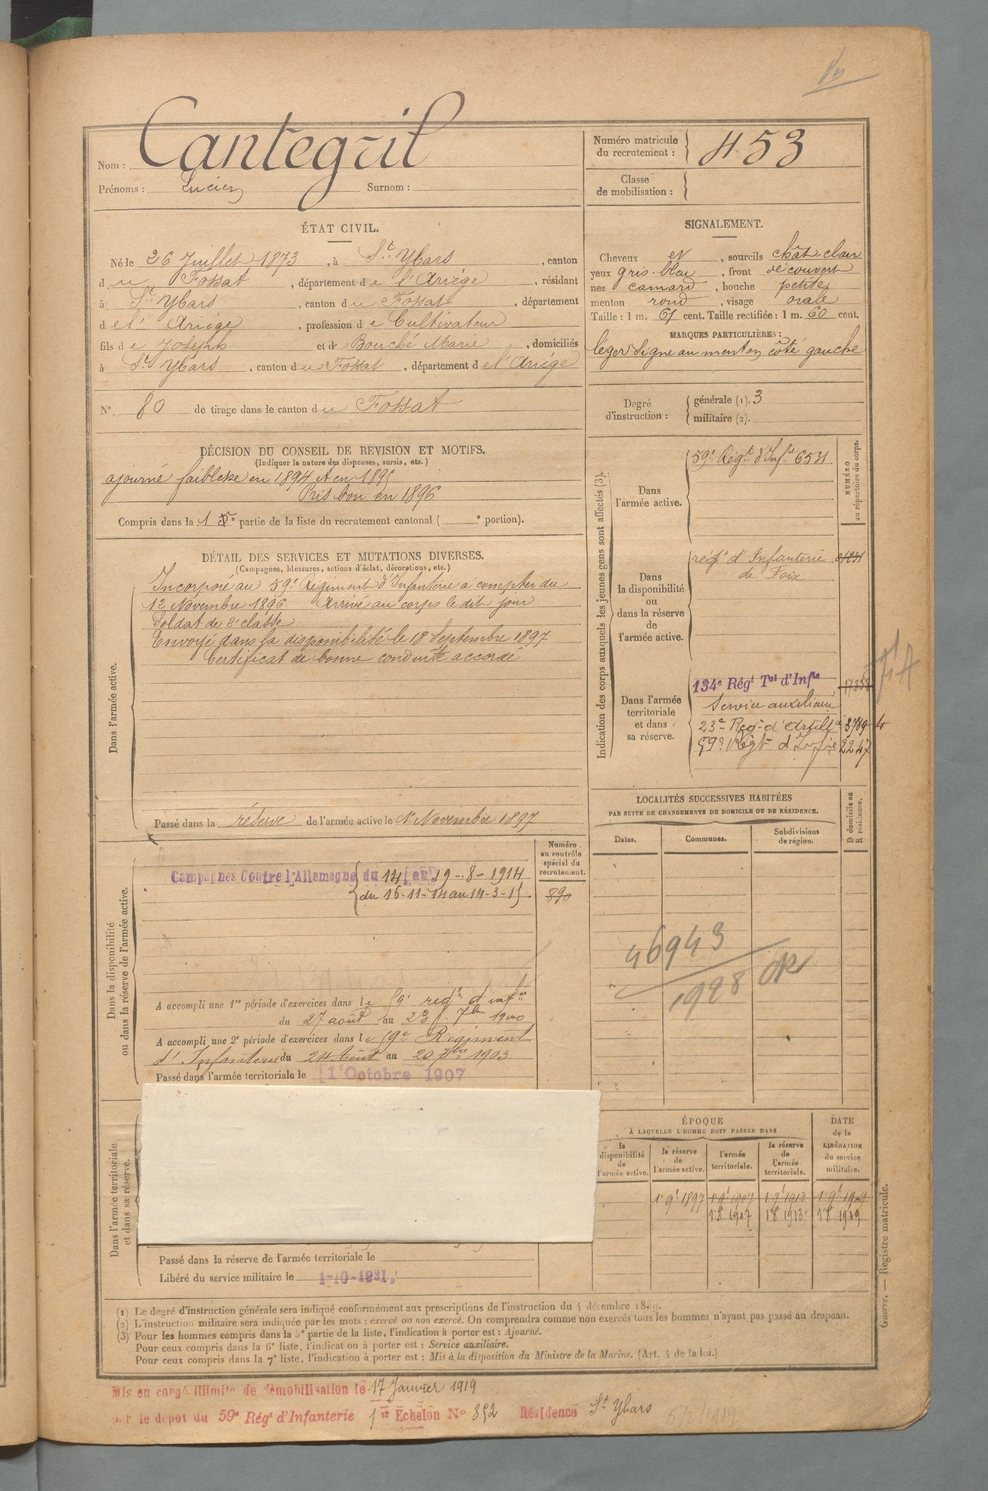 Nom : Cantegril
Prénoms : Lucien Surnom :
Numéro matricule du recrutement : 453
Classe de mobilisation :
ÉTAT CIVIL.
Né le 26 Juillet 1873, à St Ybars, canton
du Fossat, département de l'Ariége, résidant
à St Ybars, canton du Fossat, département
de l'Ariége, profession de Cultivateur
fils de Joseph et de Bouché Marie, domiciliés
à St Ybars, canton du Fossat, département de l'Ariége
N° 80 de tirage dans le canton du Fossat
SIGNALEMENT.
Cheveux et, sourcils chât. clair
yeux gris-bleu, front découvert
nez camard, bouche petite
menton rond, visage ovale
Taille : 1 m. 67 cent. Taille rectifiée : 1 m. 60 cent.
MARQUES PARTICULIÈRES :
léger signe au menton côté gauche
Degré d'instruction : générale (1). 3
militaire (2).
DÉCISION DU CONSEIL DE REVISION ET MOTIFS.
(Indiquer la nature des dispenses, sursis, etc.)
ajourné faiblesse en 1894 et en 1895
Pris bon en 1896
Compris dans la 1re partie de la liste du recrutement cantonal ( e portion).
DÉTAIL DES SERVICES ET MUTATIONS DIVERSES.
(Campagnes, blessures, actions d'éclat, décorations, etc.)
Dans l'armée active.
Incorporé au 59e Régiment d'Infanterie a compter du
12 Novembre 1896 Arrivé au corps le dit jour
Soldat de 2e classe
Envoyé dans la disponibilité le 18 Septembre 1897
Certificat de bonne conduite accordé
Passé dans la réserve de l'armée active le 1er Novembre 1897
Indication des corps auxquels les jeunes gens sont affectés (3).
NUMÉRO au répertoire du corps.
Dans l'armée active.
59e Régt d'Infie 6531
Dans la disponibilité ou dans la réserve de l'armée active.
régt d'Infanterie
de Foix
Dans l'armée territoriale et dans sa réserve.
134e Régt Tal d'Infie
Service auxiliaire
23e Régt d'Artillie 3749
59e Régt d'Infie 2247
LOCALITÉS SUCCESSIVES HABITÉES
PAR SUITE DE CHANGEMENTS DE DOMICILE OU DE RÉSIDENCE.
Dates. Communes. Subdivisions de région. D domicile ou R résidence.
46943
1928
Dans la disponibilité ou dans la réserve de l'armée active.
Numéro au contrôle spécial du recrutement.
890
Campagnes Contre l'Allemagne du 14 au 19-8-1914
du 16-11-14 au 14-3-15
A accompli une 1re période d'exercices dans le 59e regt d'infie
du 27 août au 23 7bre 1900
A accompli une 2e période d'exercices dans le 59e Régiment
d'Infanterie du 24 Août au 20 7bre 1903
Passé dans l'armée territoriale le 1 Octobre 1907
Dans l'armée territoriale et dans sa réserve.
Passé dans la réserve de l'armée territoriale le
Libéré du service militaire le 1-10-1921.
ÉPOQUE
À LAQUELLE L'HOMME DOIT PASSER DANS
la disponibilité de l'armée active. la réserve de l'armée active. l'armée territoriale. la réserve de l'armée territoriale.
DATE de la LIBÉRATION du service militaire.
1 9t 1897 1 9t 1907 1 9t 1913 1 9t 1919
1 8 1907 1 8 1913 1 8 1919
Guerre. — Registre matricule.
(1) Le degré d'instruction générale sera indiqué conformément aux prescriptions de l'instruction du 4 décembre 1889.
(2) L'instruction militaire sera indiquée par les mots : exercé ou non exercé. On comprendra comme non exercés tous les hommes n'ayant pas passé au drapeau.
(3) Pour les hommes compris dans la 5e partie de la liste, l'indication à porter est : Ajourné.
Pour ceux compris dans la 6e liste, l'indication à porter est : Service auxiliaire.
Pour ceux compris dans la 7e liste, l'indication à porter est : Mis à la disposition du Ministre de la Marine. (Art. 4 de la loi.)
Mis en congé illimité de démobilisation le 17 Janvier 1919
par le dépôt du 59e Régt d'Infanterie 1er Echelon N° 892 Résidence St Ybars